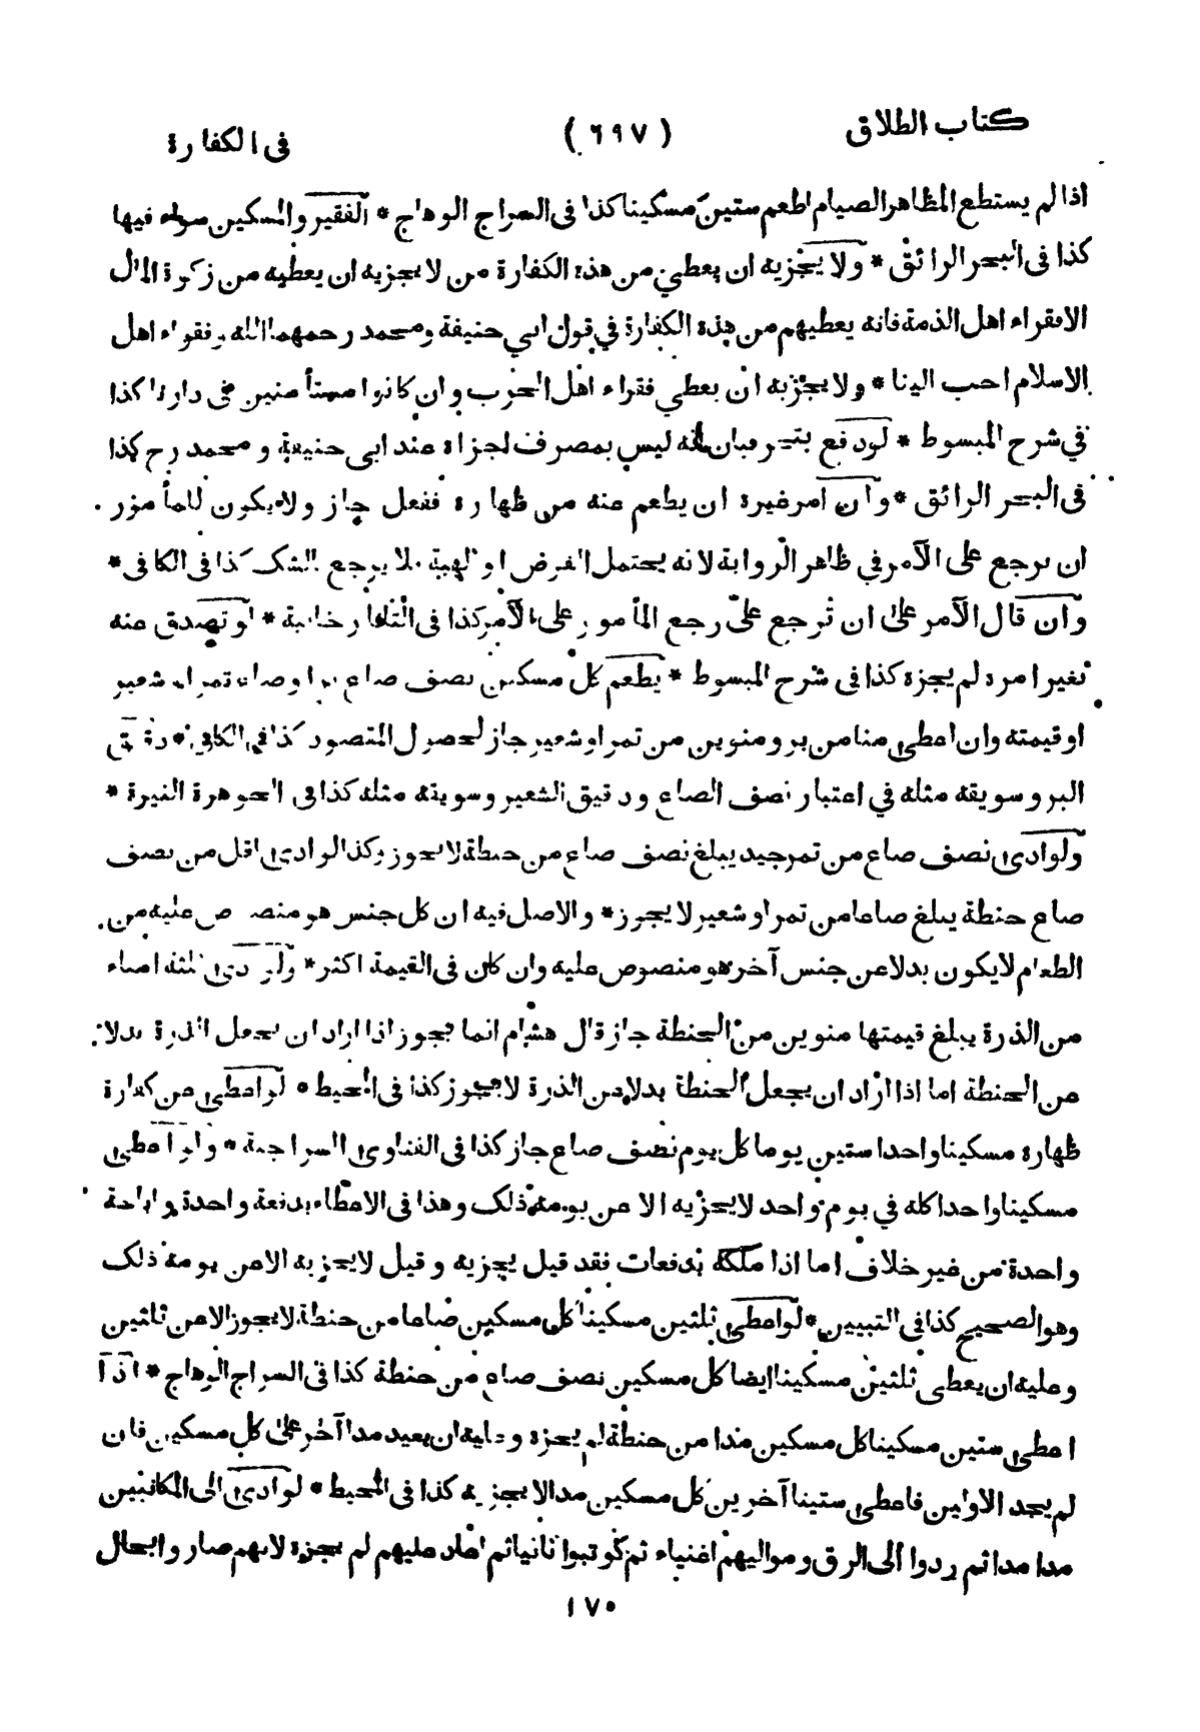 كتاب الطلاق (٦٩٧) فى الكفارة
اذا لم يستطع المظاهر الصيام اطعم ستين مسكينا كذا فى السراج الوهاج * الفقير والمسكين سواء فيها
كذا فى البحر الرائق * ولا يجزيه ان يعطي من هذه الكفارة من لا يجزيه ان يعطيه من زكوة المال
الا فقراء اهل الذمة فانه يعطيهم من هذه الكفارة في قول ابي حنيفة ومحمد رحمهما الله وفقراء اهل
الاسلام احب الينا * ولا يجزيه ان يعطي فقراء اهل الحرب وان كانوا مستأمنين في دارنا كذا
في شرح المبسوط * لو دفع بتحر فبان انه ليس بمصرف اجزاه عند ابى حنيفة و محمد رح كذا
فى البحر الرائق * وان امر غيره ان يطعم عنه من ظهاره ففعل جاز ولا يكون للمأمور
ان يرجع على الآمر في ظاهر الرواية لانه يحتمل القرض او الهبة فلا يرجع بالشك كذا فى الكافى *
وان قال الآمر على ان ترجع علىّ رجع المأمور على الآمر كذا فى التاتارخانية * لو تصدق عنه
بغير امره لم يجزه كذا فى شرح المبسوط * يطعم كل مسكين نصف صاع برا وصاع تمر او شعير
او قيمته وان اعطى منا من بر و منوين من تمر او شعير جاز لحصول المقصود كذا فى الكافى * دقيق
البر و سويقه مثله في اعتبار نصف الصاع ودقيق الشعير و سويقه مثله كذا فى الجوهرة النيرة *
ولو ادى نصف صاع من تمر جيد يبلغ نصف صاع من حنطة لا يجوز وكذا لو ادى اقل من نصف
صاع حنطة يبلغ صاعا من تمر او شعير لا يجوز * والاصل فيه ان كل جنس هو منصوص عليه من
الطعام لا يكون بدلا عن جنس آخر هو منصوص عليه وان كان فى القيمة اكثر * ولو ادى ثلثة امناء
من الذرة يبلغ قيمتها منوين من الحنطة جاز قال هشام انما يجوز اذا اراد ان يجعل الذرة بدلا
من الحنطة اما اذا اراد ان يجعل الحنطة بدلا من الذرة لا يجوز كذا فى المحيط * لو اعطى من كفارة
ظهاره مسكينا واحدا ستين يوما كل يوم نصف صاع جاز كذا فى الفتاوى السراجية * ولو اعطى
مسكينا واحدا كله في يوم واحد لا يجزيه الا عن يومه ذلك وهذا فى الاعطاء بدفعة واحدة واباحة
واحدة من غير خلاف اما اذا ملكه بدفعات فقد قيل يجزيه و قيل لا يجزيه الا عن يومه ذلك
وهو الصحيح كذا فى التبيين * لو اعطى ثلثين مسكينا كل مسكين صاعا من حنطة لا يجوز الا عن ثلثين
وعليه ان يعطى ثلثين مسكينا ايضا كل مسكين نصف صاع من حنطة كذا فى السراج الوهاج * اذا
اعطى ستين مسكينا كل مسكين مدا من حنطة لم يجزه وعليه ان يعيد مدا آخر على كل مسكين فان
لم يجد الاولين فاعطى ستينا آخرين كل مسكين مدا لا يجزيه كذا فى المحيط * لو ادى الى المكاتبين
مدا مدا ثم ردوا الى الرق ومواليهم اغنياء ثم كوتبوا ثانيا ثم اعاد عليهم لم يجزه لانهم صاروا بحال
١٧٥